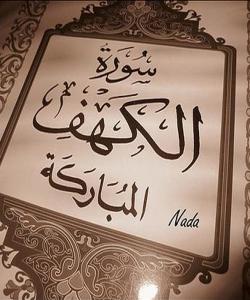 سُورَةُ
الكَهْفِ
المُبَارَكَة
Nada